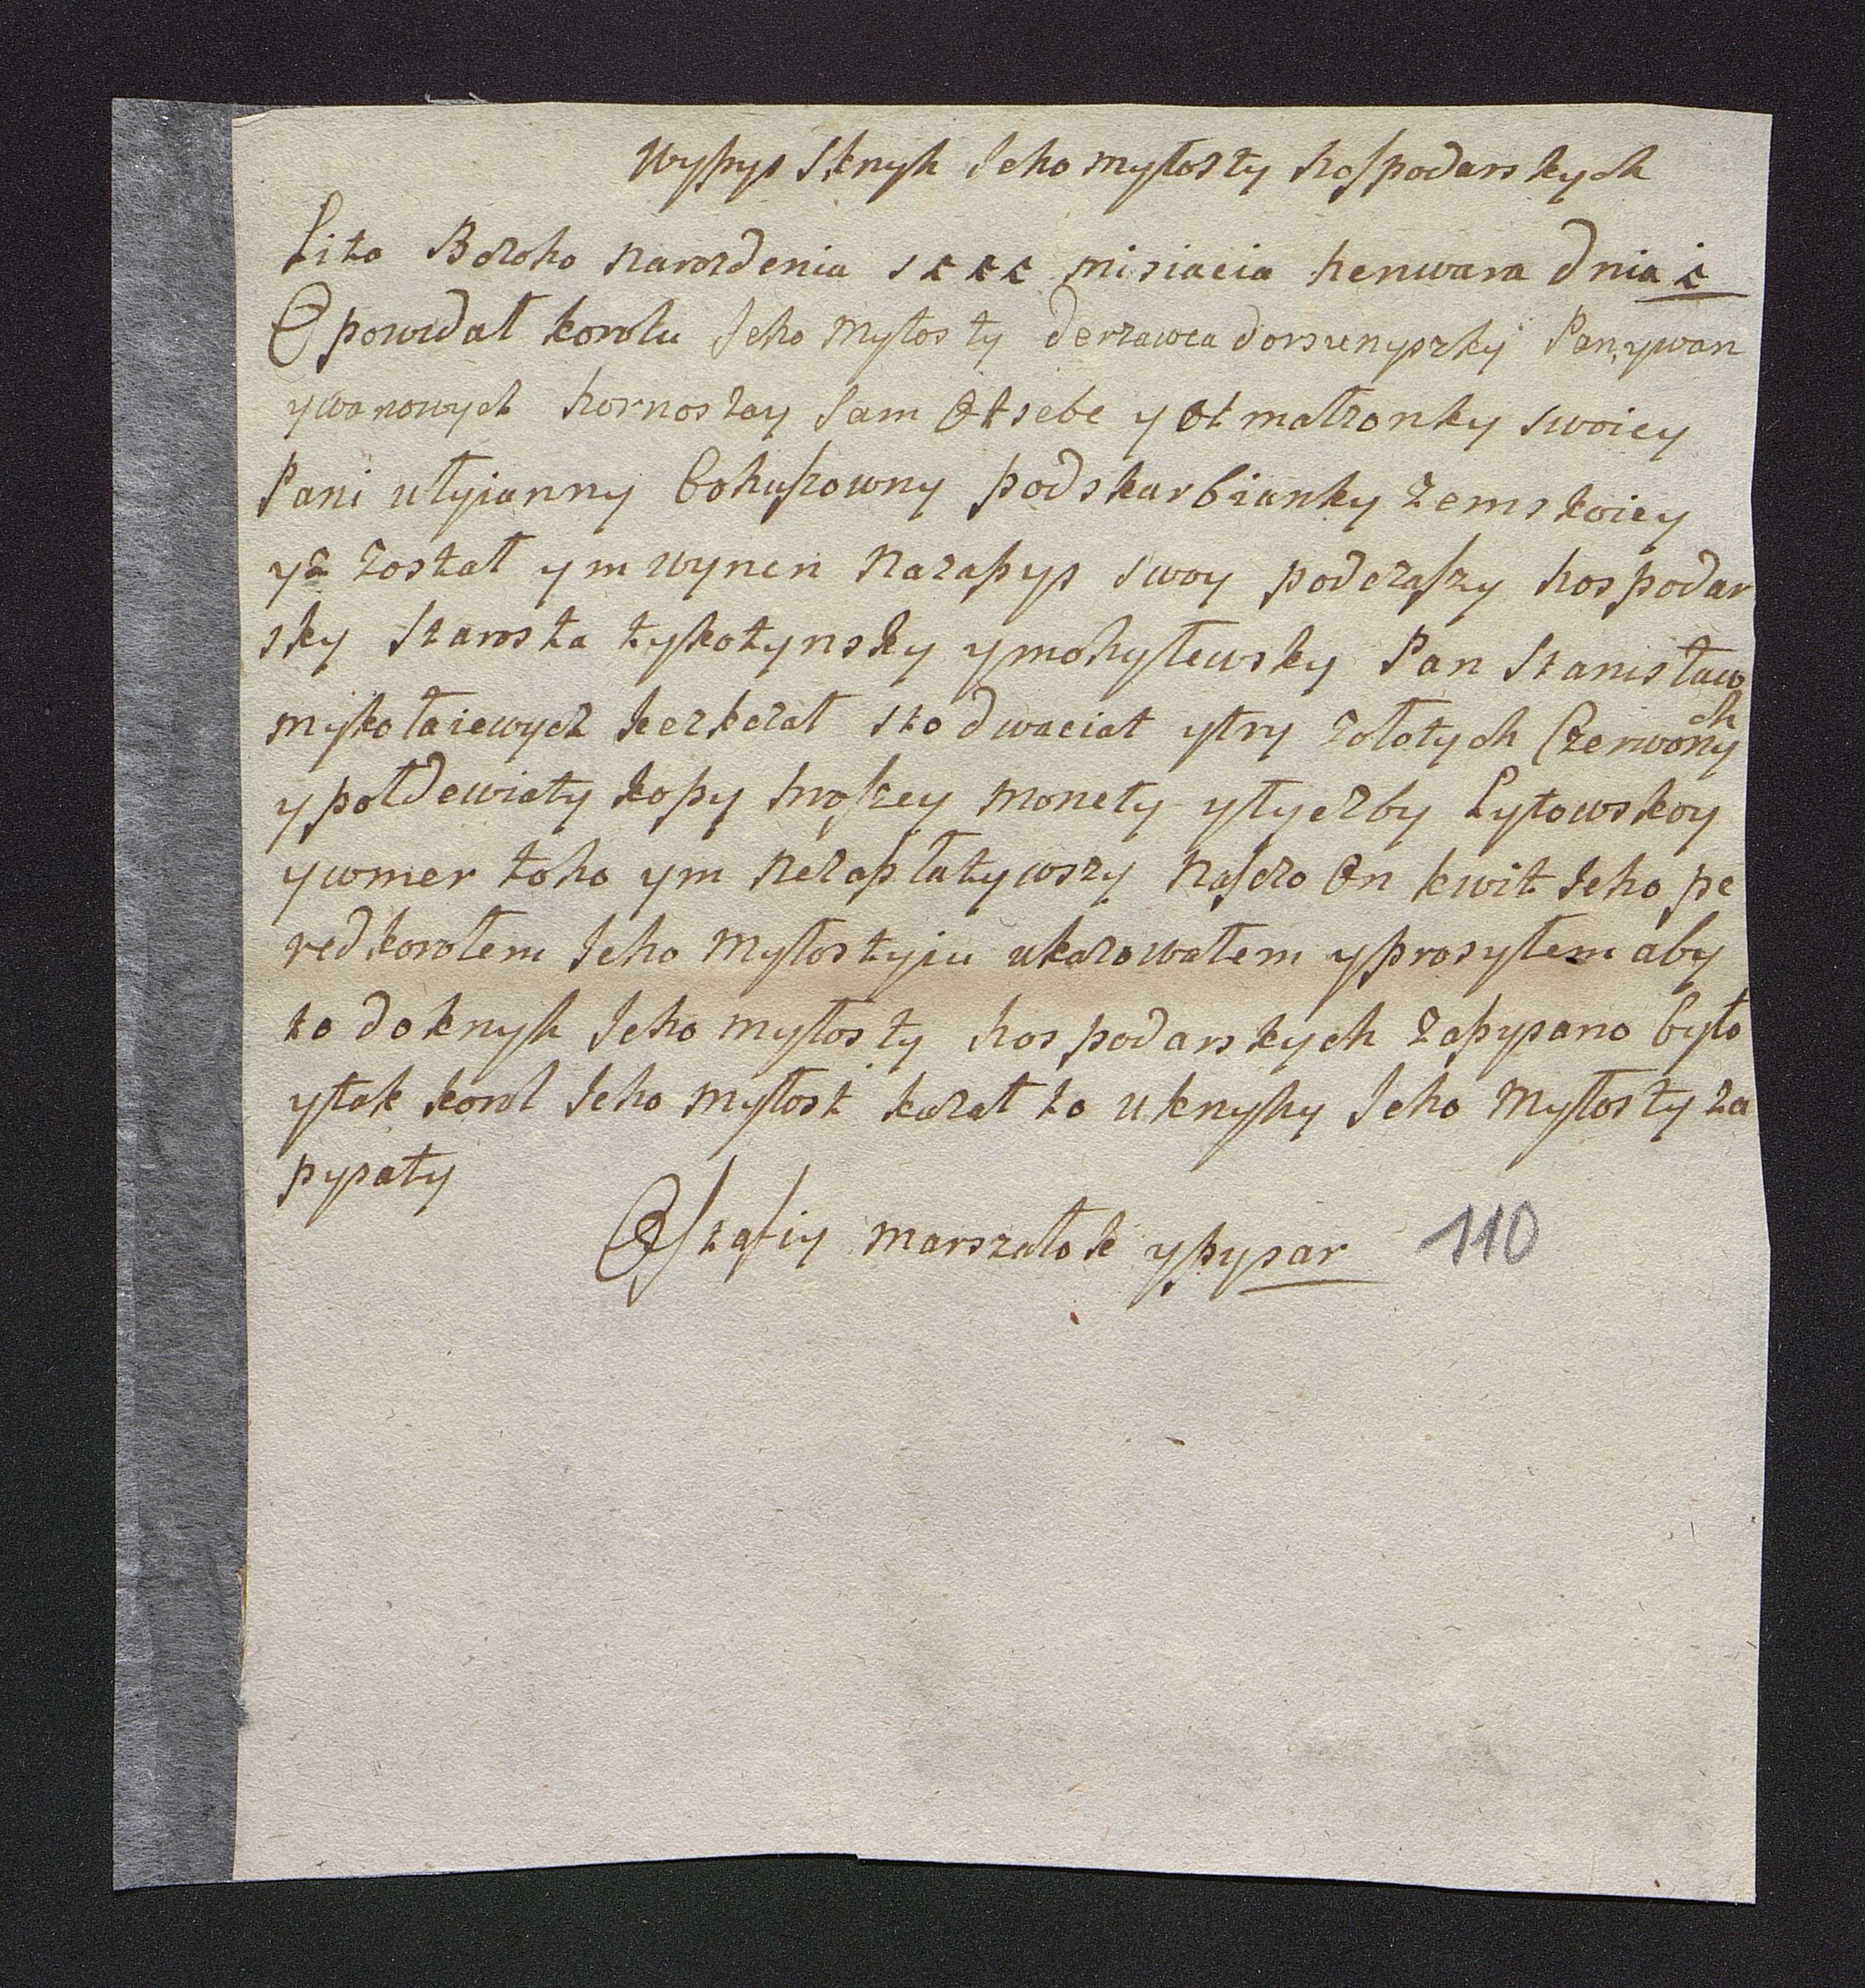 Wypys Sknyh Jeho myłosty hospodarskych
Lito Bozoho narozdenia misiacia henwara dnia
Opowidał korolu Jeho Myłosty derzawca dorsunyszky Pan ywan
ywanowych hornoszay Sam Ot sebe y ot małzonky swoiey
Pani ulyianny bohuszowny podskarbianky zemskoiey
yż został ym wynen nazapys swoy podczaszy hospodar
sky Starosta tykotynsky ymohylewsky Pan Stanisław
mykołaiewych sto dwaciat ytry zołotych Czerwonych
y połdewiaty kopy hroszey monety ylyczby Lytowskoy
y wmer toho ym nezapłatywszy naszczo On kwit Jeho pe
red korolem Jeho Myłostyiu ukazowałem yprosyłem aby
to do knyh Jeho myłosty hospodarskych zapysano było
ytak korol Jeho Myłost kazał to u knyhy Jeho Myłosty za
pysaty
Osztafiy marszałok ypysar 110